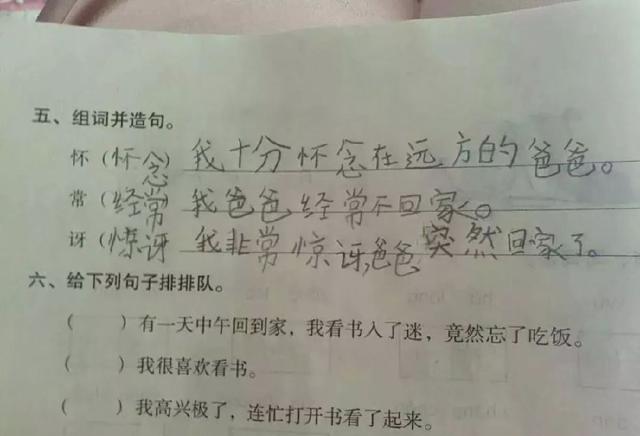 五、组词并造句。
怀（怀念）我十分怀念在远方的爸爸。
常（经常）我爸爸经常不回家。
讶（惊讶 我非常惊讶,爸爸突然回家了。
六、给下列句子排排队。
（ ）有一天中午回到家，我看书入了迷，竟然忘了吃饭。
（ ）我很喜欢看书。
（ ）我高兴极了，连忙打开书看了起来。